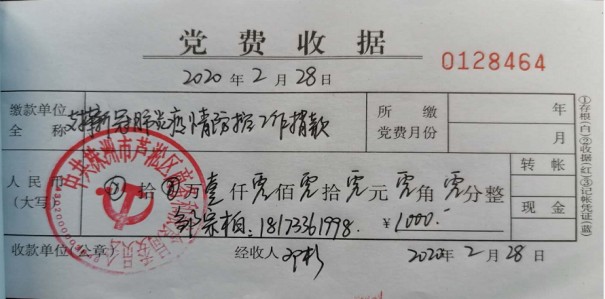 党费收据
0128464
2020年2月28日
缴款单位全称 支持新冠肺炎疫情防控工作捐款
所缴党费月份 年 月
人民币(大写) 拾 万壹仟零佰零拾零元零角零分整
转帐
现金
邹宗柏:18173361998. ¥1000.—
收款单位(公章) 经收人 邓彬 2020年2月28日
①存根(白)②收据(红)③记帐凭证(蓝)
中共株洲市芦淞区